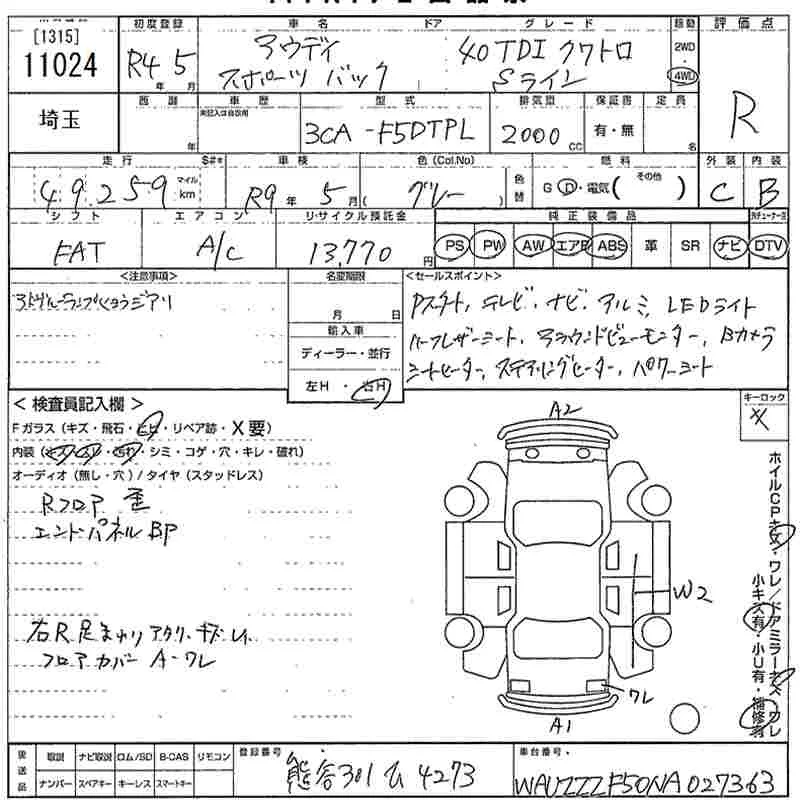 [1315]
11024
初度登録
R4 5
年 月
車名 ドア グレード
アウディ 40TDI クワトロ
スポーツバック Sライン
駆動
2WD
4WD
評価点
R
埼玉
西暦
年
車歴
未記入は自家用
型式
3CA-F5DTPL
排気量
2000 CC
保証書
有・無
定員
名
走行
49259
マイル
km
S#*
車検
R9 年 5 月
色(Col.No)
( グレー )
色替
燃料
G D・電気( その他 )
外装
C
内装
B
シフト
FAT
エアコン
A/C
リサイクル預託金
13,770 円
純正装備品
PS PW AW エアB ABS 革 SR ナビ DTV
<注意事項>
名変期限
月 日
輸入車
ディーラー・並行
左H・右H
<セールスポイント>
Pスタート, テレビ・ナビ・アルミ, LEDライト
ハーフレザーシート, アラウンドビューモニター, Bカメラ
シートヒーター, ステアリングヒーター, パワーシート
<検査員記入欄>
Fガラス(キズ・飛石・ヒビ・リペア跡・X要)
内装(キズ・スレ・汚れ・シミ・コゲ・穴・キレ・破れ)
オーディオ(無し・穴)/タイヤ(スタッドレス)
Rフロア 歪
エンドパネルBP
右R足まわりアクリ・キズ・レイ
フロアカバー A-ワレ
キーロック
A2
W2
ワレ
A1
ホイルCPキズ・ワレ/ドアミラーキズ・ワレ
小キズ有・小U有・補修有
後送品
取説 ナビ取説 ロム/SD B-CAS リモコン
ナンバー スペアキー キーレス スマートキー
登録番号
熊谷301 ム 4273
車台番号
WAUZZZF50NA027363